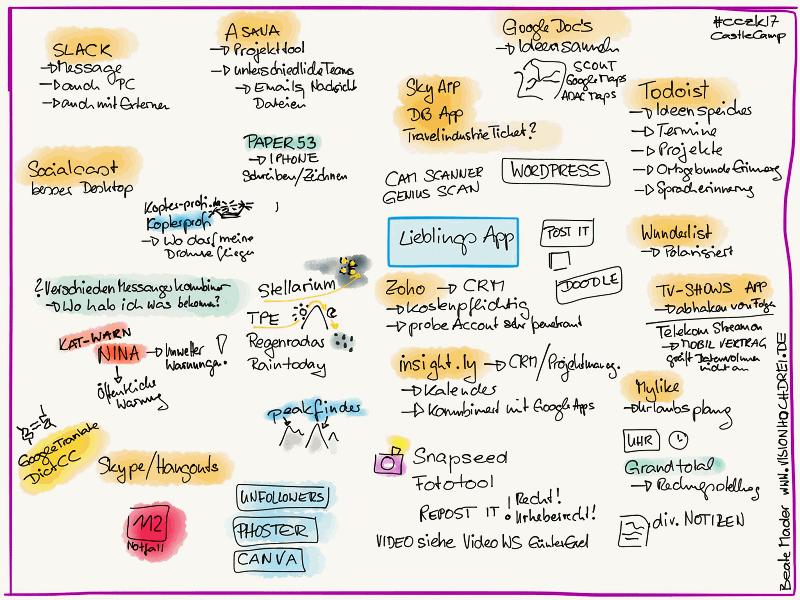 #cczk17
CastleCamp
SLACK
→ Message
→ auch PC
→ auch mit Externen
ASANA
→ Projekttool
→ unterschiedliche Teams
→ Emails, Nachricht
Dateien
Google Doc's
→ Ideen sammeln
SCOUT
Google Maps
ADAC Maps
Sky App
DB App
Travelindustrie Ticket?
Todoist
→ Ideenspeicher
→ Termine
→ Projekte
→ Ortsgebunde Erinnerung
→ Spracherinnerung
PAPER 53
→ IPHONE
Schreiben/Zeichnen
Socialcast
besser Desktop
CAM SCANNER
GENIUS SCAN
WORDPRESS
Kopter-profi.de
Kopterprofi
→ Wo darf meine
Drohne fliegen
Lieblings App
POST IT
DOODLE
Wunderlist
→ Polarisiert
? Verschieden Messanges kombinier
→ Wo hab ich was bekomen?
Stellarium
TPE
Regenradar
Raintoday
Zoho → CRM
→ kostenpflichtig
→ probe Accout sehr penetrant
TV-SHOWS APP
→ abhaken von Folgen
Telekom Streamon
→ MOBIL VERTRAG
greift Datenvolumen
nicht an
KAT-WARN
NINA → Unwetter
Warnungen
!
Öffentliche
Warnung
insight.ly → CRM/Projektmanag.
→ Kalender
→ Kombiniert mit Google Apps
Mylike
→ Urlaubsplanung
peakfinder
UHR
Grandtotal
→ Rechnungstellung
Google Translate
Dict.CC
Skype/Hangouts
Snapseed
Fototool
REPOST IT ! Recht!
Urheberrecht!
UNFOLLOWERS
PHOSTER
CANVA
M2
Notfall
div. NOTIZEN
VIDEO siehe Video WS
Beate Mader www.VISIONHOCHDREI.DE